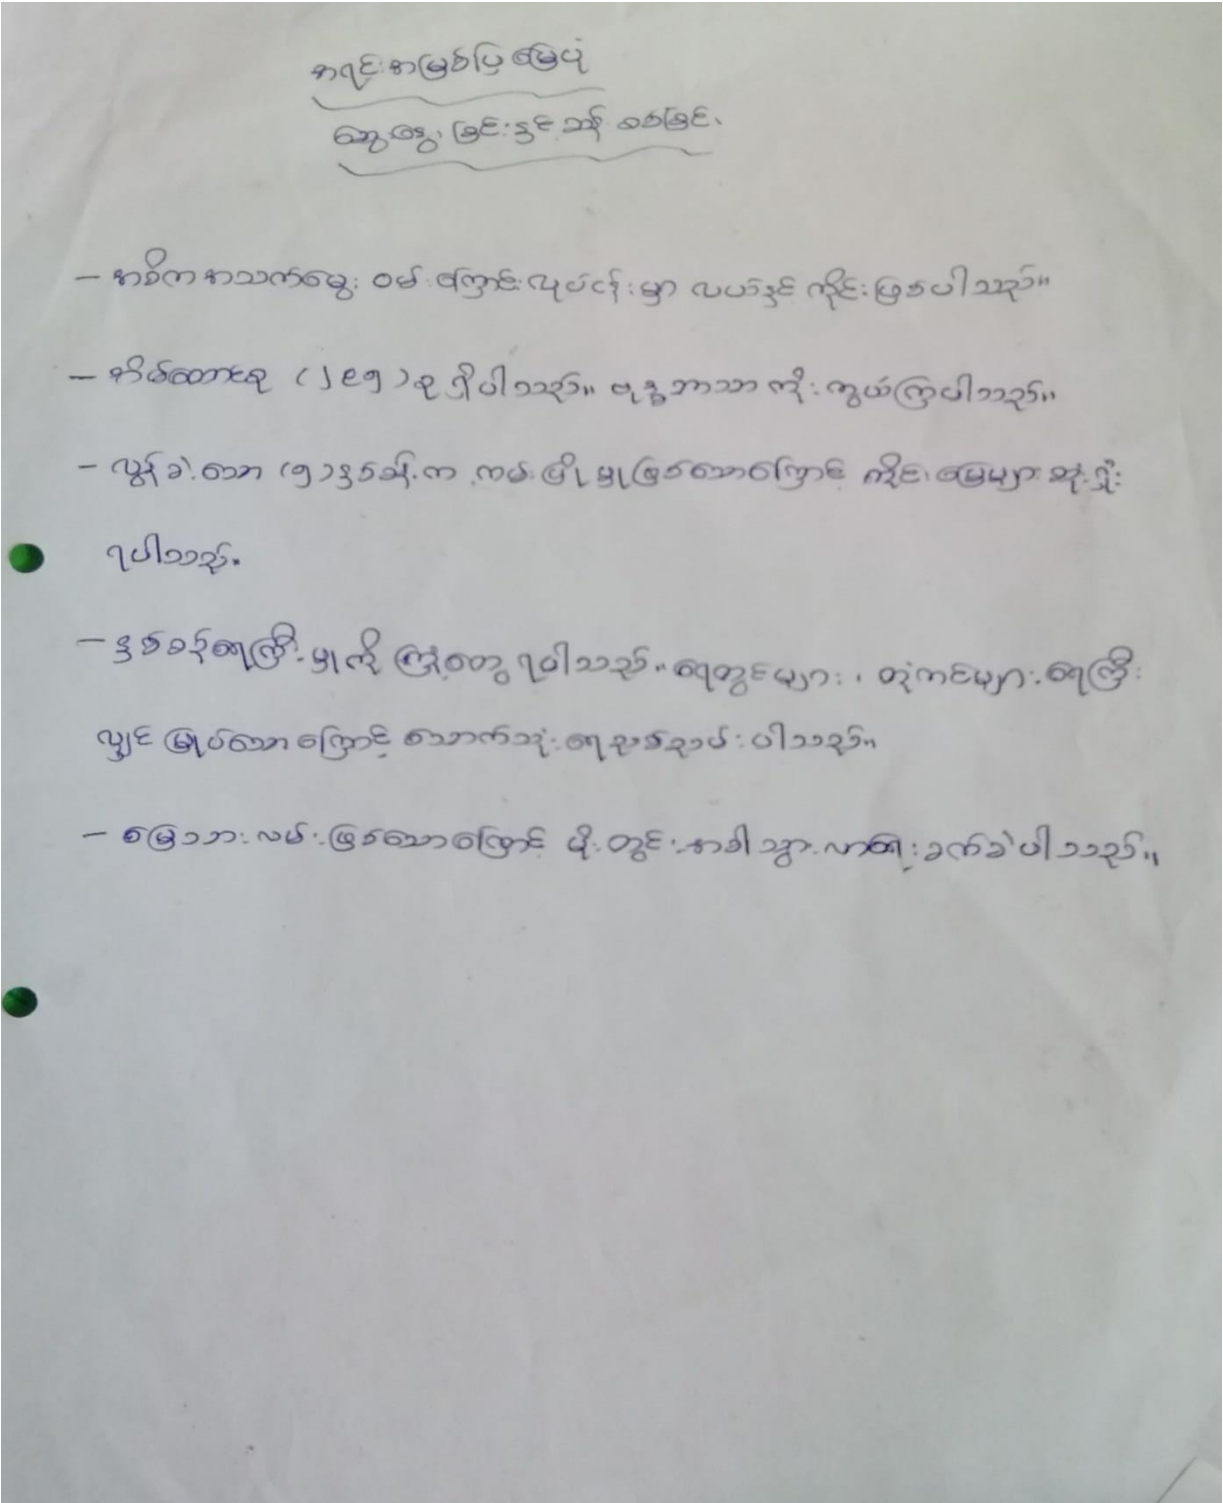 အရင်းအမြစ်ပြ မြေပုံ
ဆွေးနွေးခြင်းနှင့် ဆန်းစစ်ခြင်း
- အဓိက အသက်မွေး ဝမ်းကြောင်းလုပ်ငန်းမှာ လယ်နှင့် ကိုင်းဖြစ်ပါသည်။
- အိမ်ထောင်စု (၂၉၅) စု ရှိပါသည်။ ဗုဒ္ဓဘာသာ ကိုးကွယ်ကြပါသည်။
- လွန်ခဲ့သော (၅) နှစ်ခန့်က ကမ်းပြိုမှုဖြစ်သောကြောင့် ကိုင်းမြေများ ဆုံးရှုံး
ရပါသည်။
- နှစ်စဉ်ရေကြီးမှုကို ကြုံတွေ့ရပါသည်။ ရေတွင်းများ၊ တုံကင်များ ရေကြီး
လျှင် မြုပ်သောကြောင့် သောက်သုံးရေညစ်ညမ်းပါသည်။
- မြေသားလမ်းဖြစ်သောကြောင့် မိုးတွင်းအခါ သွားလာရေးခက်ခဲပါသည်။